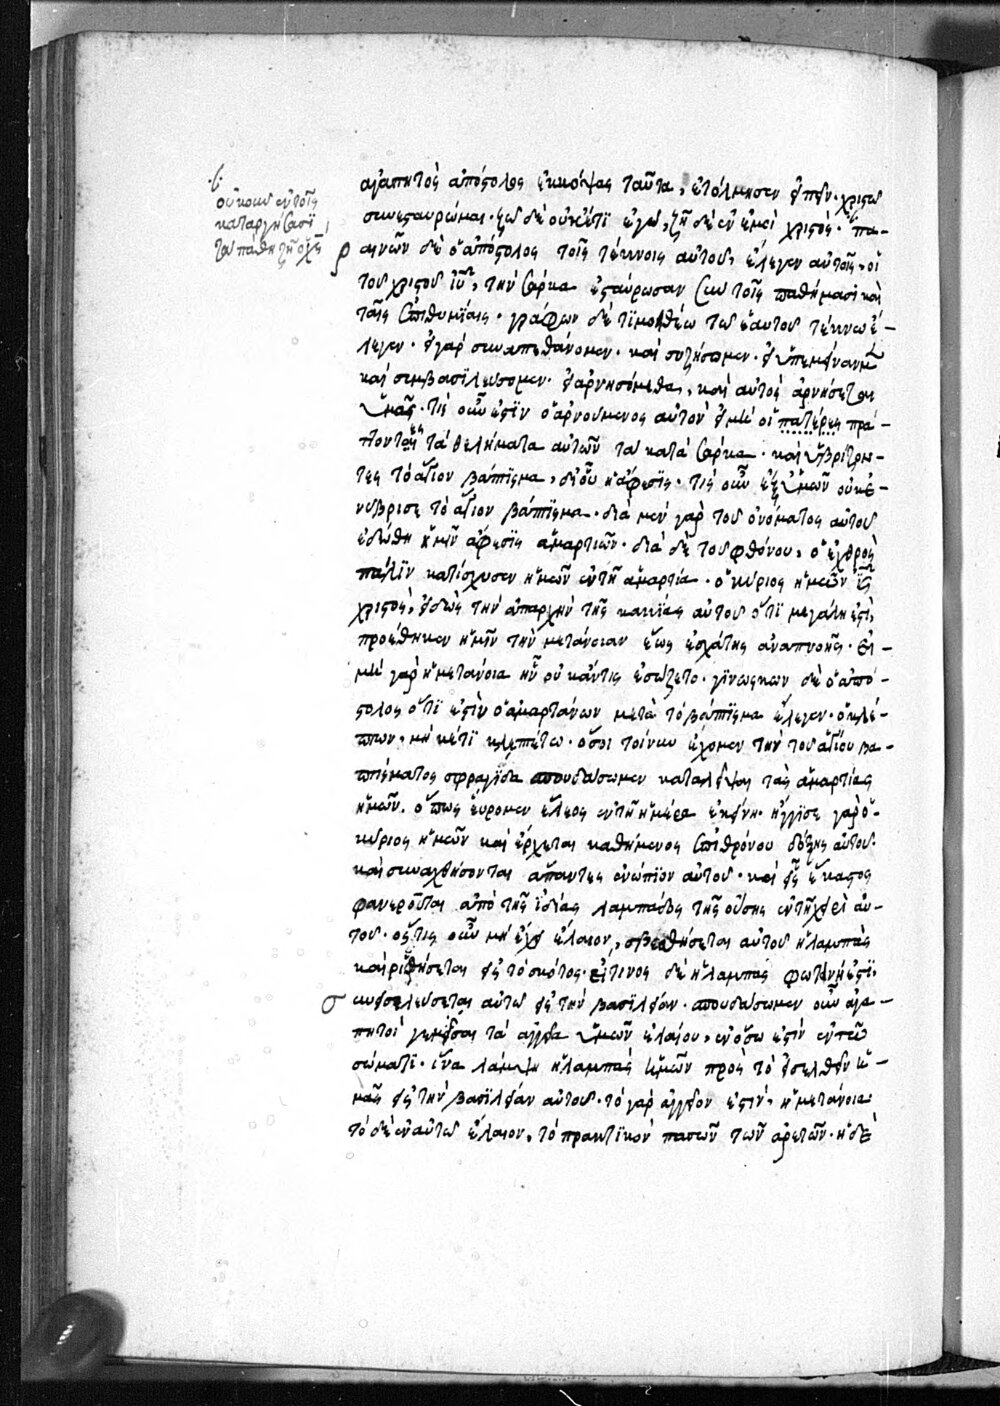 οὐκοῦν ἐν τοῖς
καταργήσασι
τὰ πάθη ζῇ ὁ χς
ἀγαπητὸς ἀπόστολος ἐκκόψας ταῦτα, ἐτόλμησεν εἰπεῖν· χριστῷ
συνεσταύρωμαι· ζῶ δὲ οὐκέτι ἐγὼ, ζῇ δὲ ἐν ἐμοὶ χριστός· πα-
ρ αινῶν δὲ ὁ ἀπόστολος τοῖς τέκνοις αὐτοῦ, ἔλεγεν αὐτοῖς, οἱ
τοῦ χριστοῦ ἰῦ, τὴν σάρκα ἐσταύρωσαν σὺν τοῖς παθήμασι καὶ
ταῖς ἐπιθυμίαις· γράφων δὲ τιμοθέω τῶ ἑαυτοῦ τέκνω ἔ-
λεγεν· εἰ γὰρ συναπεθάνομεν· καὶ συζήσωμεν· εἰ ὑπεμείναμεν
καὶ συμβασιλεύσομεν· εἰ ἀρνησόμεθα, καὶ αὐτὸς ἀρνήσεται
ὑμᾶς· τίς οὖν ἐστὶν ὁ ἀρνούμενος αὐτὸν εἰ μὴ οἱ πατέρες πρά-
ττοντες τὰ θελήματα αὐτῶν τὰ κατὰ σάρκα· καὶ ὑβρίζον-
τες τὸ ἅγιον βάπτισμα, δι' οὗ ἡ ἄφεσις· τίς οὖν ἐξ ὑμῶν οὐκ ἐ-
νύβρισε τὸ ἅγιον βάπτισμα· διὰ μὲν γὰρ τοῦ ὀνόματος αὐτοῦ
ἐδόθη ἡμῖν ἄφεσις ἁμαρτιῶν· διὰ δὲ τοῦ φθόνου, ὁ ἐχθρὸς
πάλιν κατίσχυσεν ἡμῶν ἐν τῆ ἁμαρτία· ὁ κύριος ἡμῶν ις
χριστὸς, εἰδὼς τὴν ἀπαρχὴν τῆς κακίας αὐτοῦ ὅτι μεγάλη ἐστὶ,
προέθηκεν ἡμῖν τὴν μετάνοιαν ἕως ἐσχάτης ἀναπνοῆς· εἰ-
μὴ γὰρ ἡ μετάνοια ἦν οὐκ ἄντις ἐσώζετο· γινώσκων δὲ ὁ ἀπό-
στολος ὅτι ἐστὶν ὁ ἁμαρτάνων μετὰ τὸ βάπτισμα ἔλεγεν· ὁ κλέ-
πτων, μὴκέτι κλεπτέτω· ὅσοι τοίνυν ἔχομεν τὴν τοῦ ἁγίου βα-
πτίσματος σφραγῖδα σπουδάσωμεν καταλεῖψαι τὰς ἁμαρτίας
ἡμῶν. ὅπως εὕρομεν ἔλεος ἐν τῆ ἡμέρα ἐκείνη· ἤγγισε γὰρ ὁ-
κύριος ἡμῶν καὶ ἔρχεται καθήμενος ἐπὶ θρόνου δόξης αὐτοῦ·
καὶ συναχθήσονται ἅπαντες ἐνώπιον αὐτοῦ· καὶ εἷς ἕκαστος
φανεροῦται ἀπὸ τῆς ἰδίας λαμπάδος τῆς οὔσης ἐν τῆ χειρὶ αὐ-
τοῦ· ὅστις οὖν μὴ ἔχει ἔλαιον, σβεσθήσεται αὐτοῦ ἡ λαμπὰς
καὶ ῥιφθήσεται εἰς τὸ σκότος· εἴτινος δὲ ἡ λαμπὰς φωτεινή ἐστι·
σ συνεισελεύσεται αὐτῶ εἰς τὴν βασιλείαν· σπουδάσωμεν οὖν ἀγα-
πητοὶ γεμίσαι τὰ ἀγγεῖα ὑμῶν ἐλαίου, ἐν ὅσω ἐστὶν ἐν τῶ
σώματι· ἵνα λάμψη ἡ λαμπὰς ὑμῶν πρὸς τὸ εἰσελθεῖν ὑ-
μᾶς εἰς τὴν βασιλείαν αὐτοῦ· τὸ γὰρ ἀγγεῖον ἐστὶν, ἡ μετάνοια
τὸ δὲ ἐν αὐτῶ ἔλαιον, τὸ πρακτικὸν πασῶν τῶν ἀρετῶν· ἡ δὲ